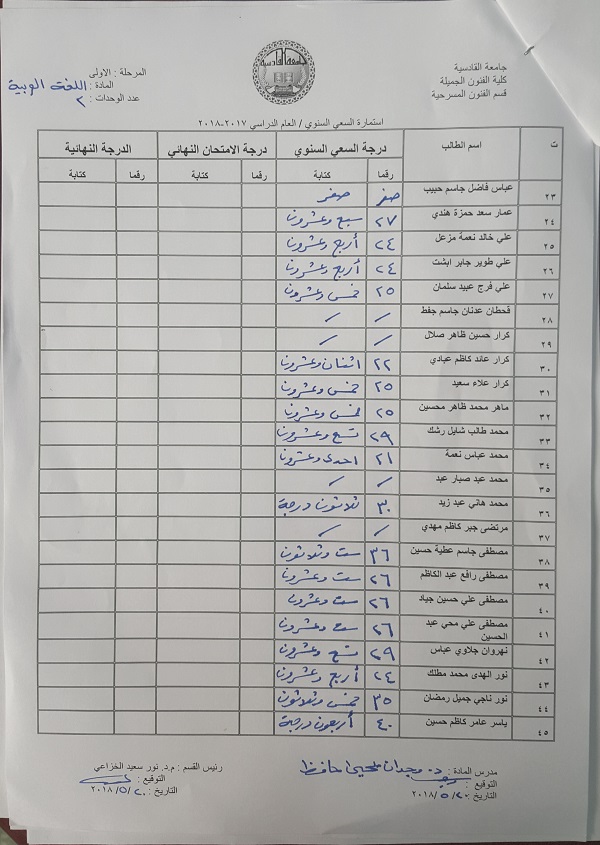 جامعة القادسية
كلية الفنون الجميلة
قسم الفنون المسرحية
جامعة القادسية
المرحلة : الاولى
المادة : اللغة العربية
عدد الوحدات : ٢
استمارة السعي السنوي / العام الدراسي ٢٠١٧-٢٠١٨
ت اسم الطالب درجة السعي السنوي درجة الامتحان النهائي الدرجة النهائية
رقما كتابة رقما كتابة رقما كتابة
٢٣ عباس فاضل جاسم حبيب صفر صفر
٢٤ عمار سعد حمزة هندي ٢٧ سبع وعشرون
٢٥ علي خالد نعمة مزعل ٢٤ أربع وعشرون
٢٦ علي طوير جابر ابشت ٢٤ أربع وعشرون
٢٧ علي فرج عبيد سلمان ٢٥ خمس وعشرون
٢٨ قحطان عدنان جاسم جفط / /
٢٩ كرار حسين ظاهر صلال / /
٣٠ كرار عائد كاظم عبادي ٢٢ اثنان وعشرون
٣١ كرار علاء سعيد ٢٥ خمس وعشرون
٣٢ ماهر محمد ظاهر محسين ٢٥ خمس وعشرون
٣٣ محمد طالب شايل رشك ٢٩ تسع وعشرون
٣٤ محمد عباس نعمة ٢١ احدى وعشرون
٣٥ محمد عبد صبار عبد / /
٣٦ محمد هاني عبد زيد ٣٠ ثلاثون درجة
٣٧ مرتضى جبر كاظم مهدي / /
٣٨ مصطفى جاسم عطية حسين ٣٦ ست وثلاثون
٣٩ مصطفى رافع عبد الكاظم ٢٦ ست وعشرون
٤٠ مصطفى علي حسين جياد ٢٦ ست وعشرون
٤١ مصطفى علي محي عبد ٢٦ ست وعشرون
الحسين
٤٢ نهروان جلاوي عباس ٢٩ تسع وعشرون
٤٣ نور الهدى محمد مطلك ٢٤ أربع وعشرون
٤٤ نور ناجي جميل رمضان ٣٥ خمس وثلاثون
٤٥ ياسر عامر كاظم حسين ٤٠ أربعون درجة
مدرس المادة : د. وجدان حافظ
التوقيع :
التاريخ : ٢٠/٥/٢٠١٨
رئيس القسم : م.د. نور سعيد الخزاعي
التوقيع :
التاريخ : ٢٠/٥/٢٠١٨